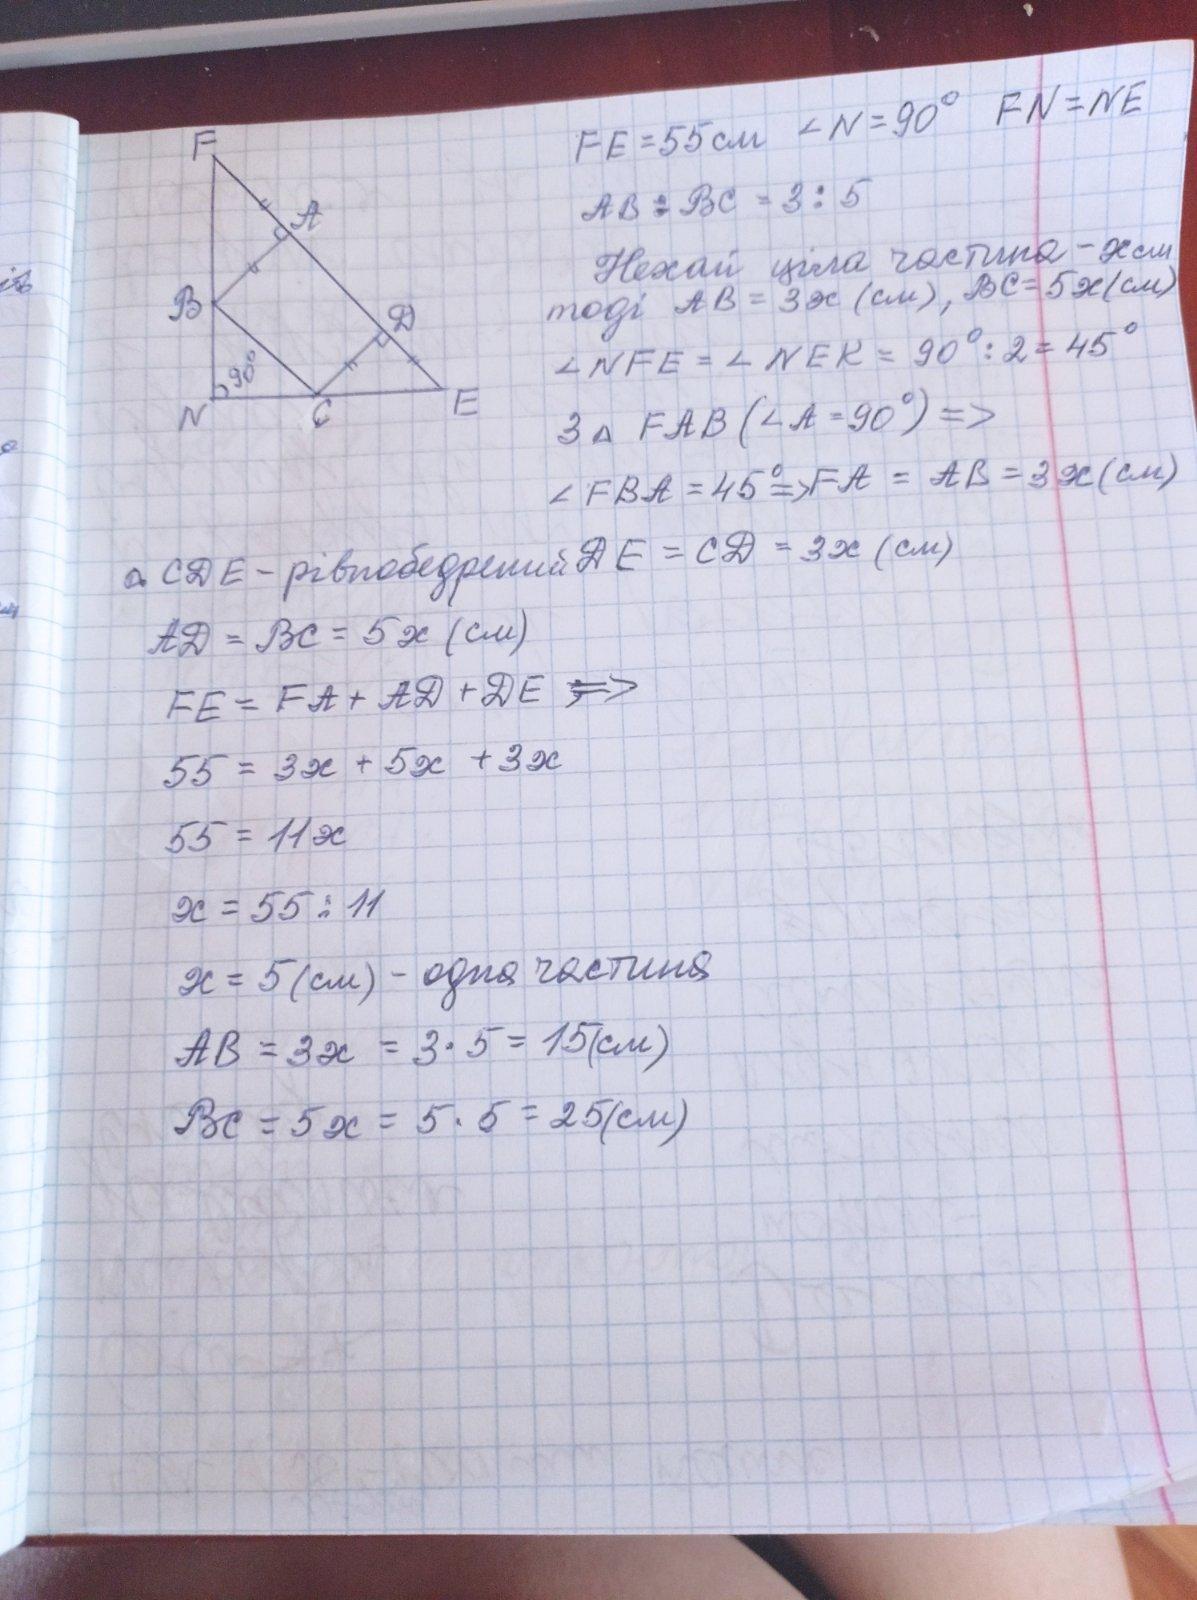 F
A
B
D
90°
N
C
E
FE = 55 см ∠N = 90° FN = NE
AB : BC = 3 : 5
Нехай ціла частина - x см
тоді AB = 3x (см), BC = 5x (см)
∠NFE = ∠NEK = 90° : 2 = 45°
З △ FAB (∠A = 90°) =>
∠FBA = 45° => FA = AB = 3x (см)
△ CDE - рівнобедрений DE = CD = 3x (см)
AD = BC = 5x (см)
FE = FA + AD + DE =>
55 = 3x + 5x + 3x
55 = 11x
x = 55 : 11
x = 5 (см) - одна частина
AB = 3x = 3 · 5 = 15 (см)
BC = 5x = 5 · 5 = 25 (см)